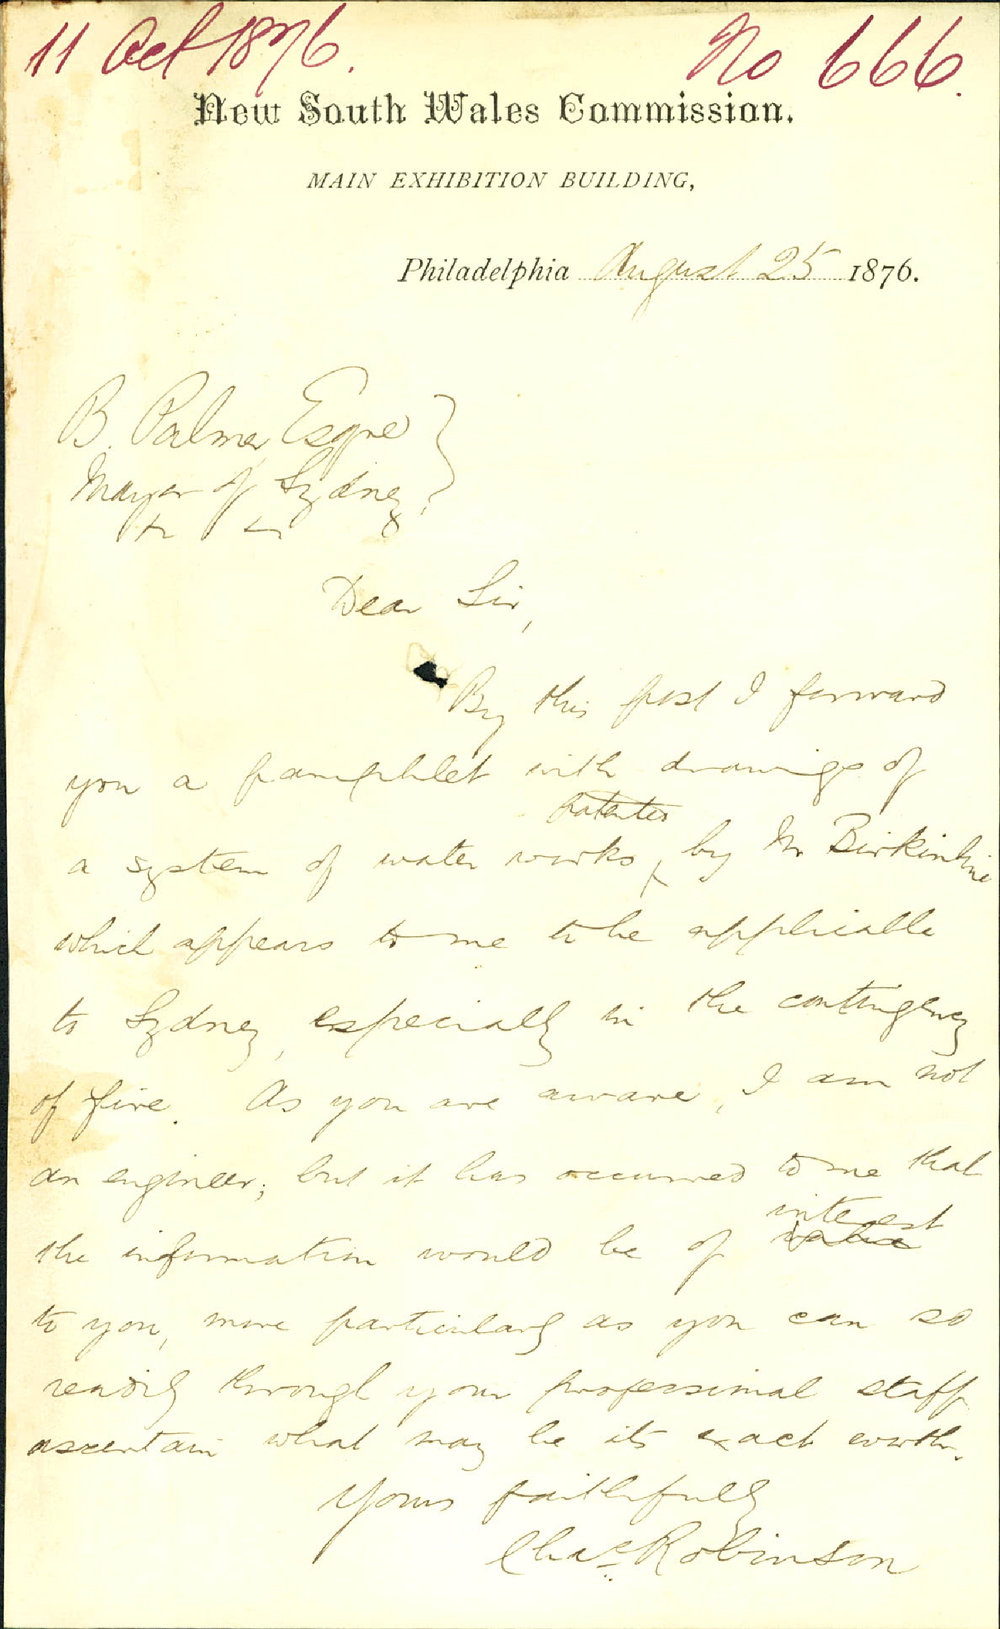 11 Oct 1876. No 666.
New South Wales Commission.
MAIN EXHIBITION BUILDING,
Philadelphia August 25 1876.
B. Palmer Esqre
Mayor of Sydney
Dear Sir,
By this post I forward
you a pamphlet with drawings of
patented
a system of water works, by Mr Birkinbine
which appears to me to be applicable
to Sydney, especially in the contingency
of fire. As you are aware, I am not
an engineer; but it has occurred to me that
interest
the information would be of value
to you, more particularly as you can so
readily through your professional staff
ascertain what may be its exact worth.
Yours faithfully
Chas Robinson